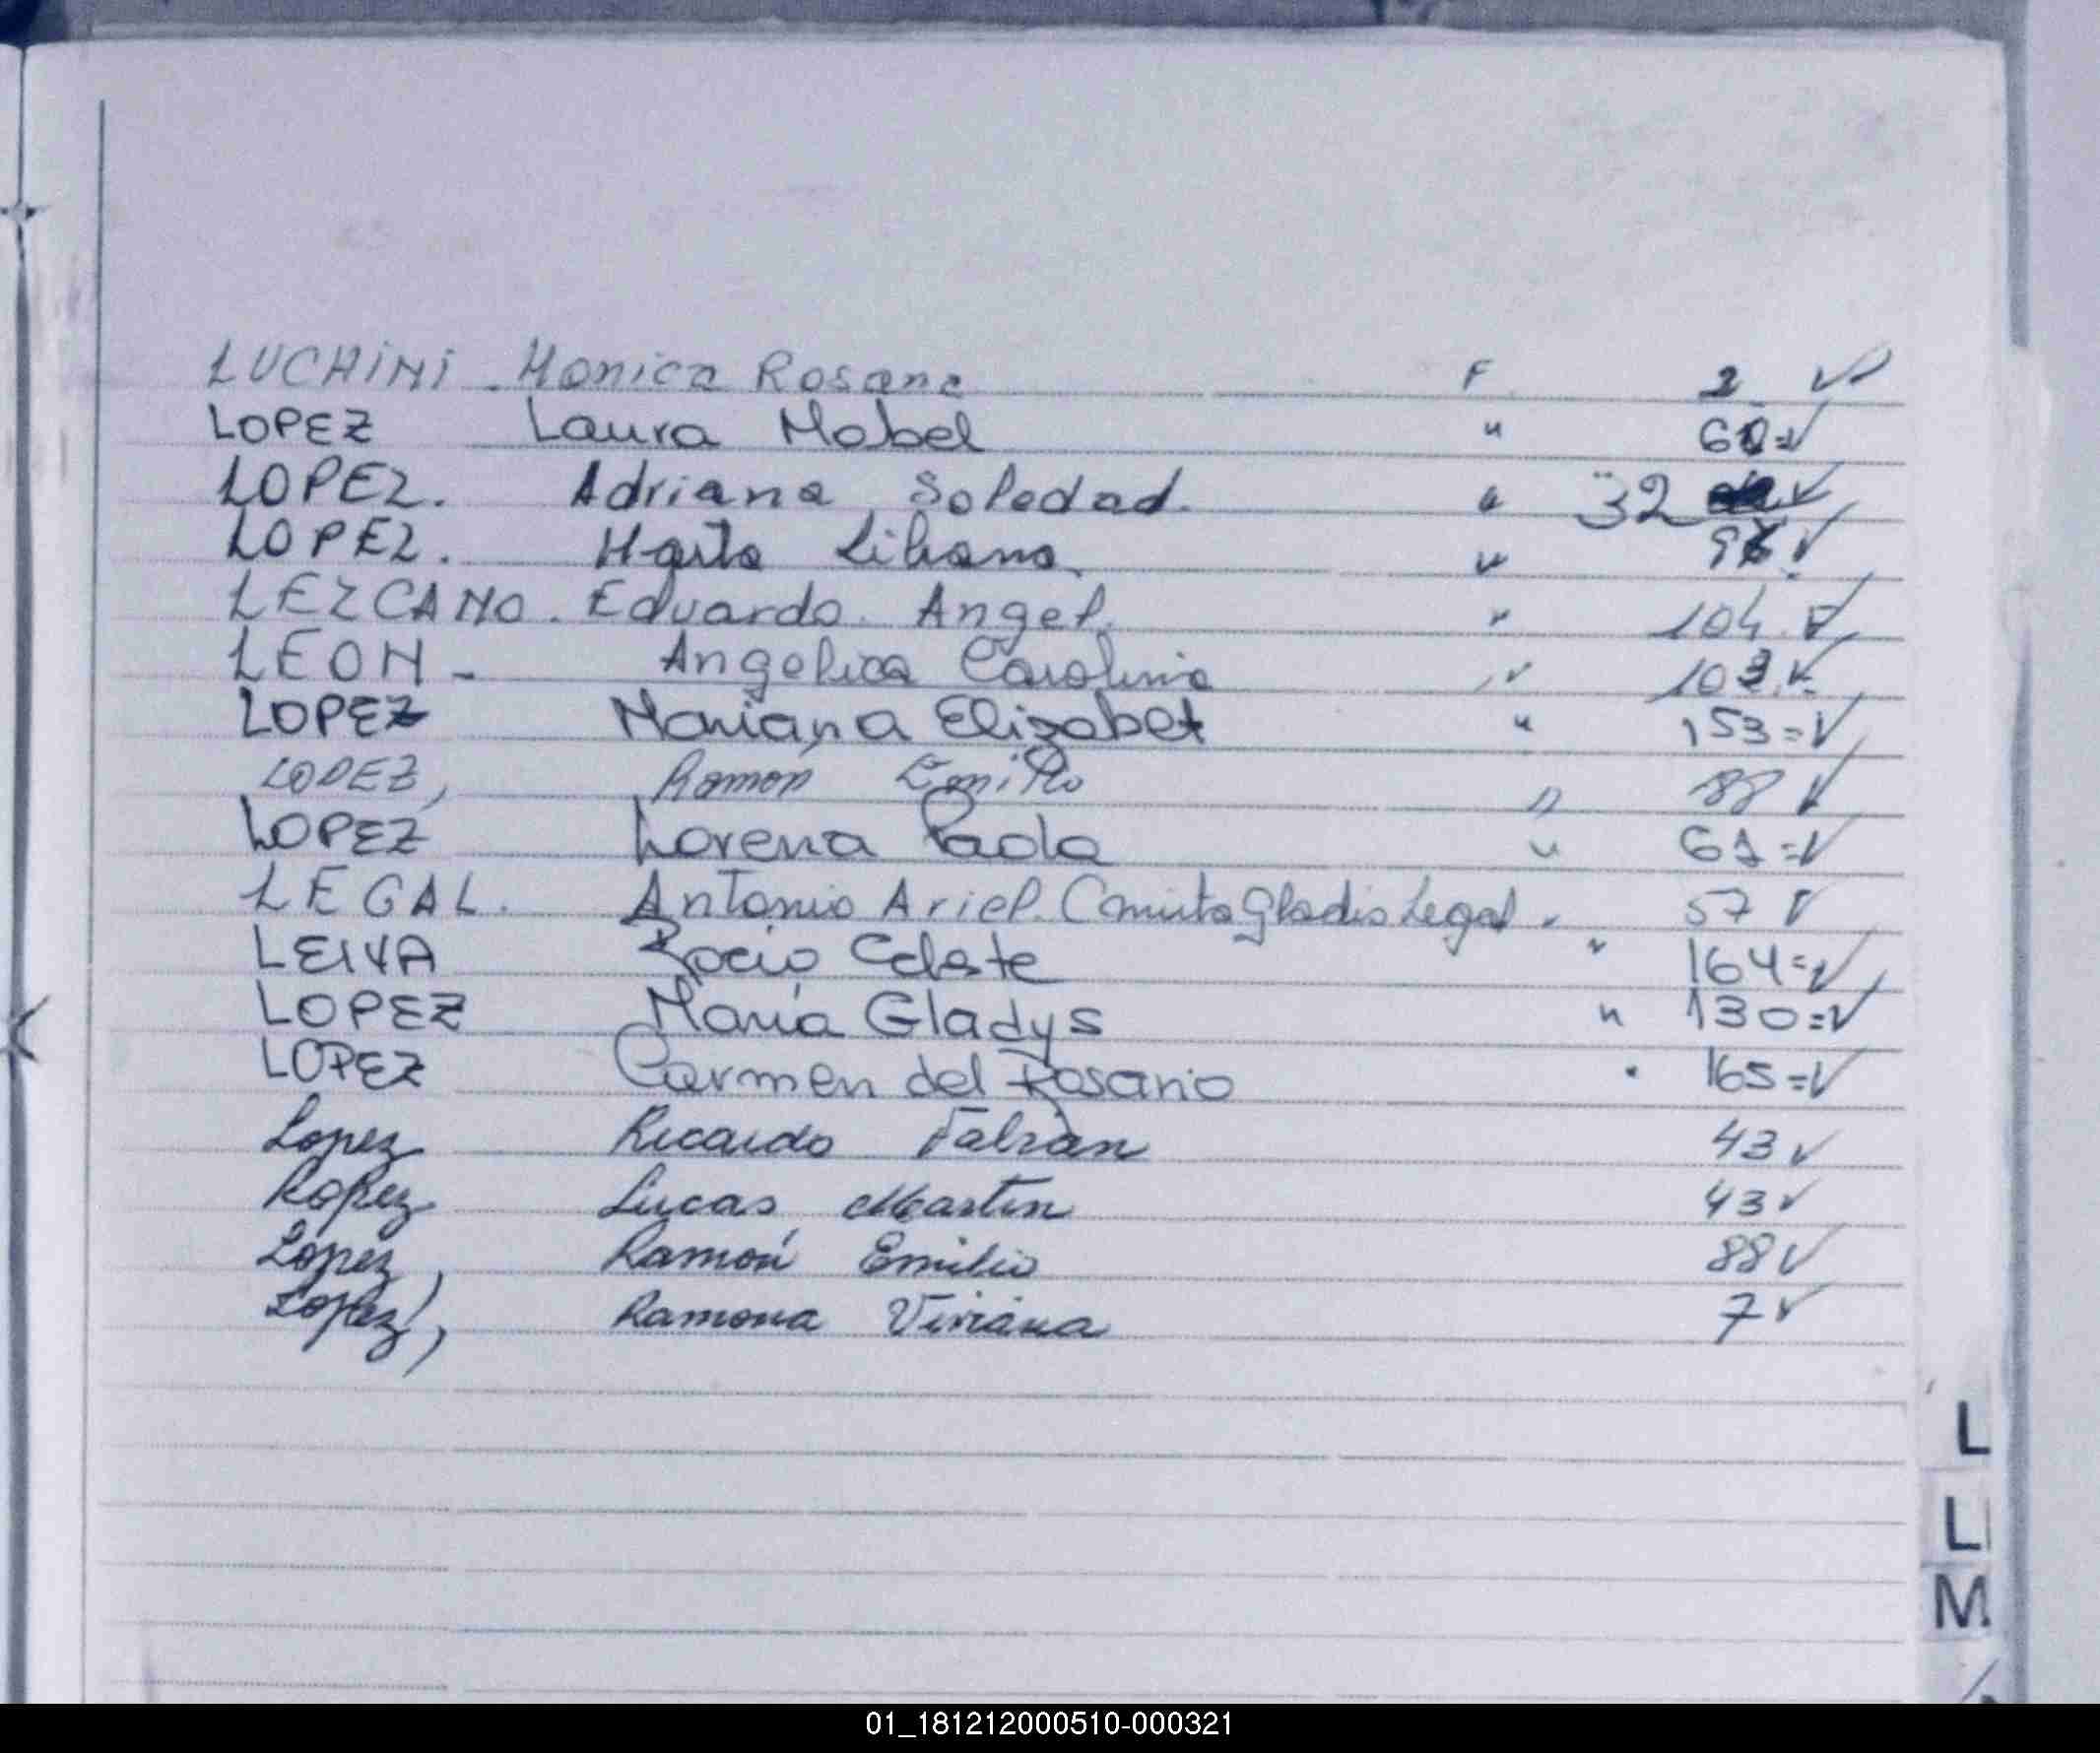 LUCHiNi - Monica Rosana F 2 ✓
LOPEZ Laura Mabel " 60=✓
LOPEZ. Adriana Soledad. " 32 ✓
LOPEZ. Marta Liliana " ✓
LEZCANO. Eduardo Angel. " 104 ✓
LEON - Angelica Carolina " ✓
LOPEZ Mariana Elizabet " 153=✓
LOPEZ, Ramon Emilio " 88 ✓
LOPEZ Lorena Paola " 61=✓
LEGAL. Antonio Ariel. Gladis Legal " 57 ✓
LEIVA Rocio Celeste " 164=✓
LOPEZ María Gladys " 130=✓
LOPEZ Carmen del Rosario " 165=✓
Lopez Ricardo Fabian 43 ✓
Lopez Lucas Martin 43 ✓
Lopez, Ramón Emilio 88 ✓
Lopez, Ramona Viviana 7 ✓
L
L
M
01_181212000510-000321